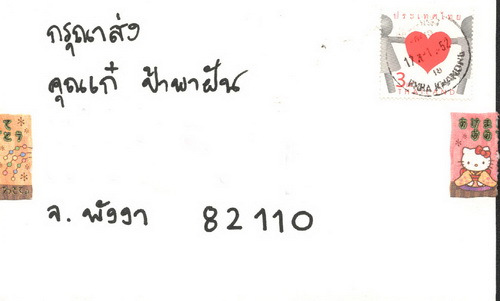 กรุณาส่ง
คุณเก๋ ป้าพาฝัน
จ. พังงา 82110
ประเทศไทย
3
THAILAND